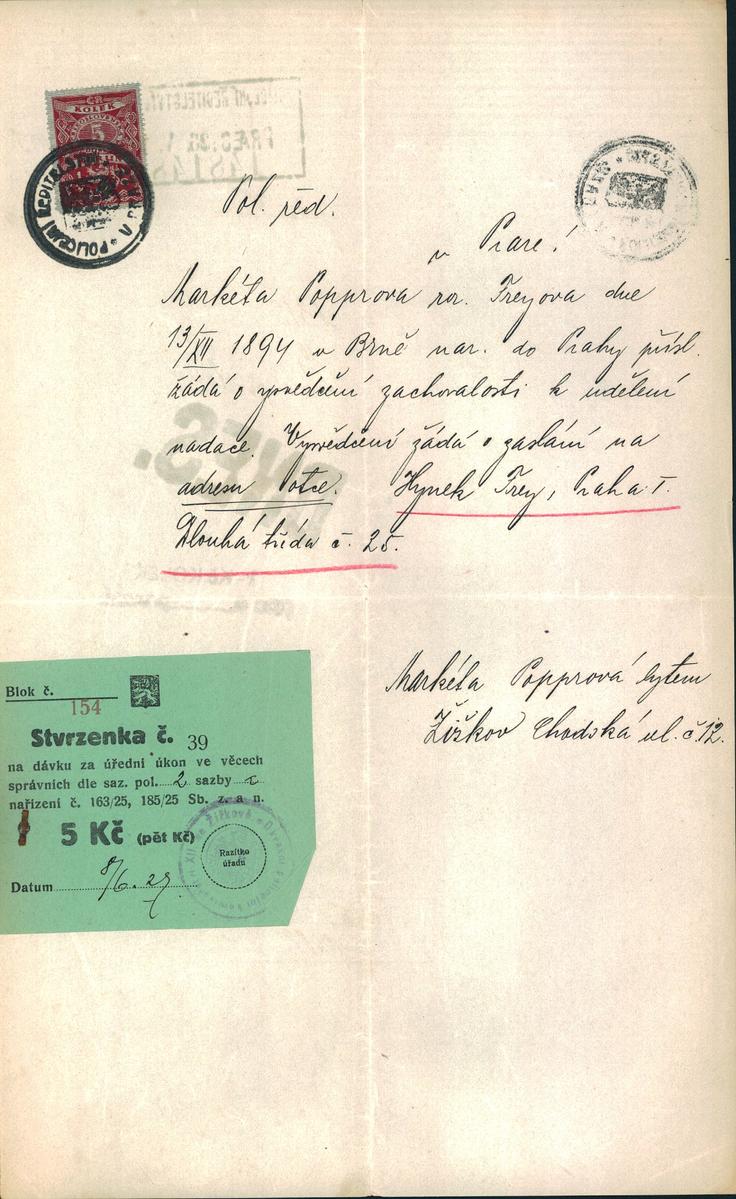 ČR
KOLEK
5
POLICEJNÍ ŘEDITELSTVÍ
Pol. řed.
v Praze!
Markéta Popprova roz. Freyova dne
13/XII 1894 v Brně nar. do Prahy přísl.
žádá o vysvědčení zachovalosti k udělení
nadace. Vysvědčení žádá o zaslání na
adresu otce. Hynek Frey, Praha I.
Dlouhá třída č. 25.
Markéta Popprová bytem
Žižkov Chodská ul. č. 12.
Blok č. 154
Stvrzenka č. 39
na dávku za úřední úkon ve věcech
správních dle saz. pol. 2 sazby
nařízení č. 163/25, 185/25 Sb. z. a n.
5 Kč (pět Kč)
Razítko
úřadu
Datum 8/6. 27